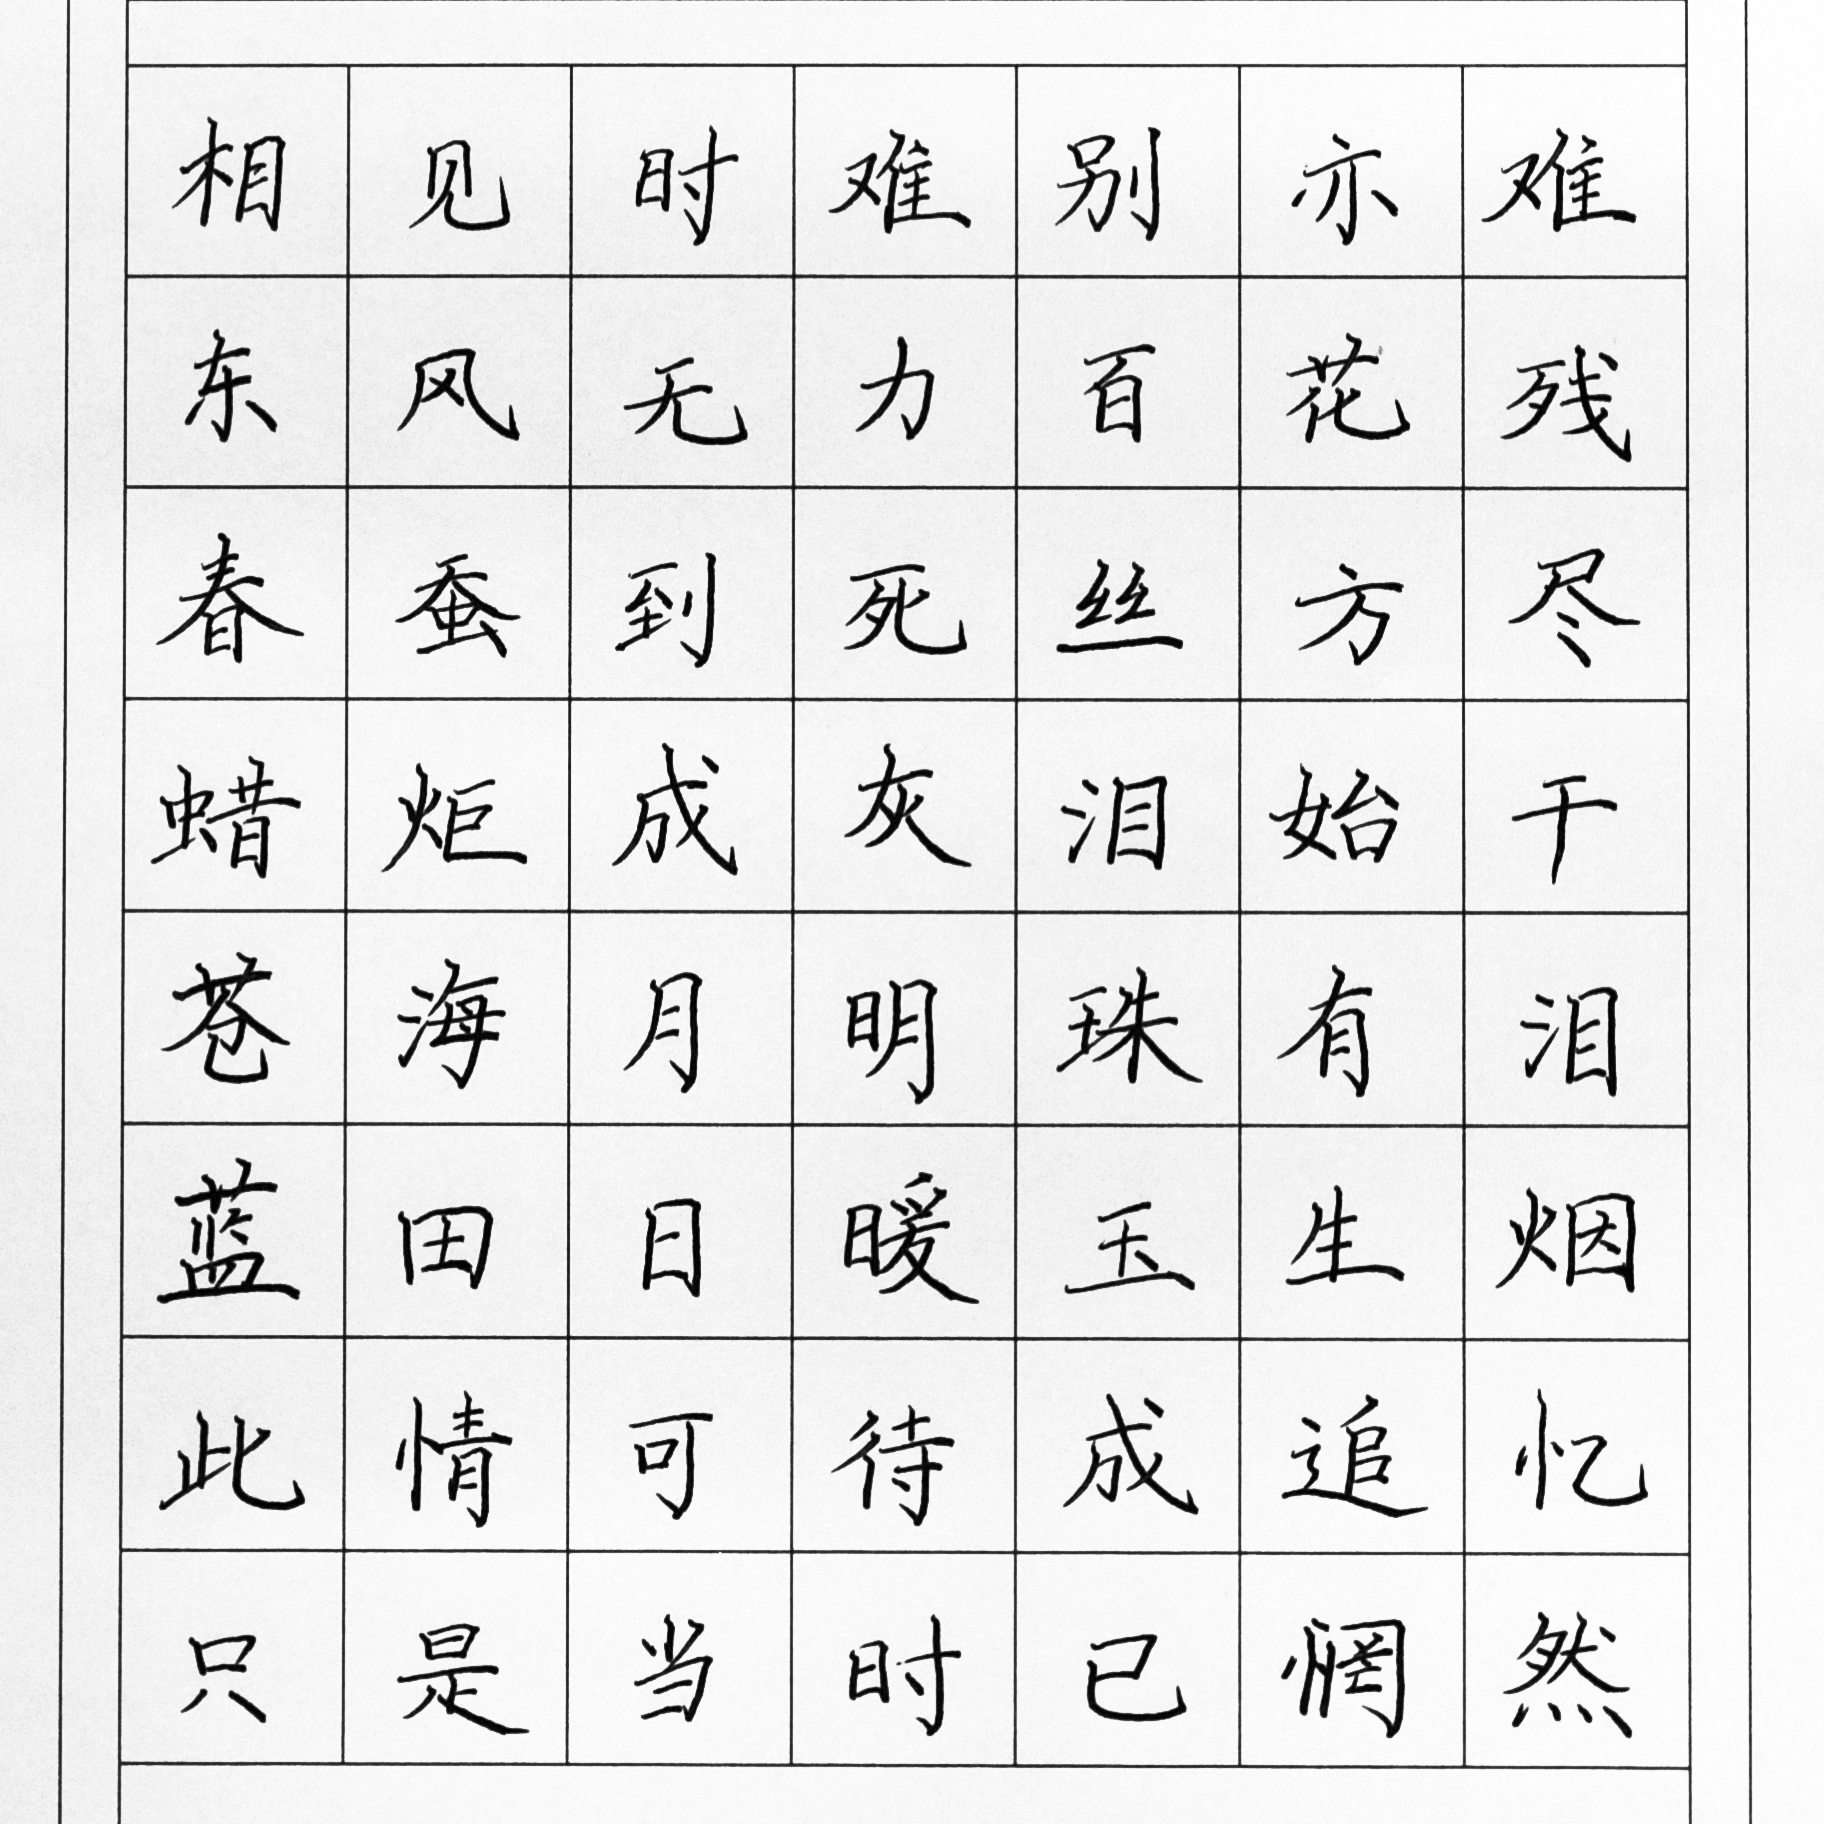 相见时难别亦难
东风无力百花残
春蚕到死丝方尽
蜡炬成灰泪始干
苍海月明珠有泪
蓝田日暖玉生烟
此情可待成追忆
只是当时已惘然